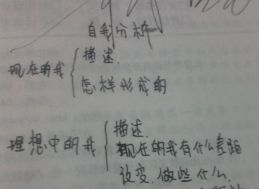 自我分析
现在的我
描述.
怎样形成的
理想中的我
描述.
现在的我有什么差距
改变.做些什么.